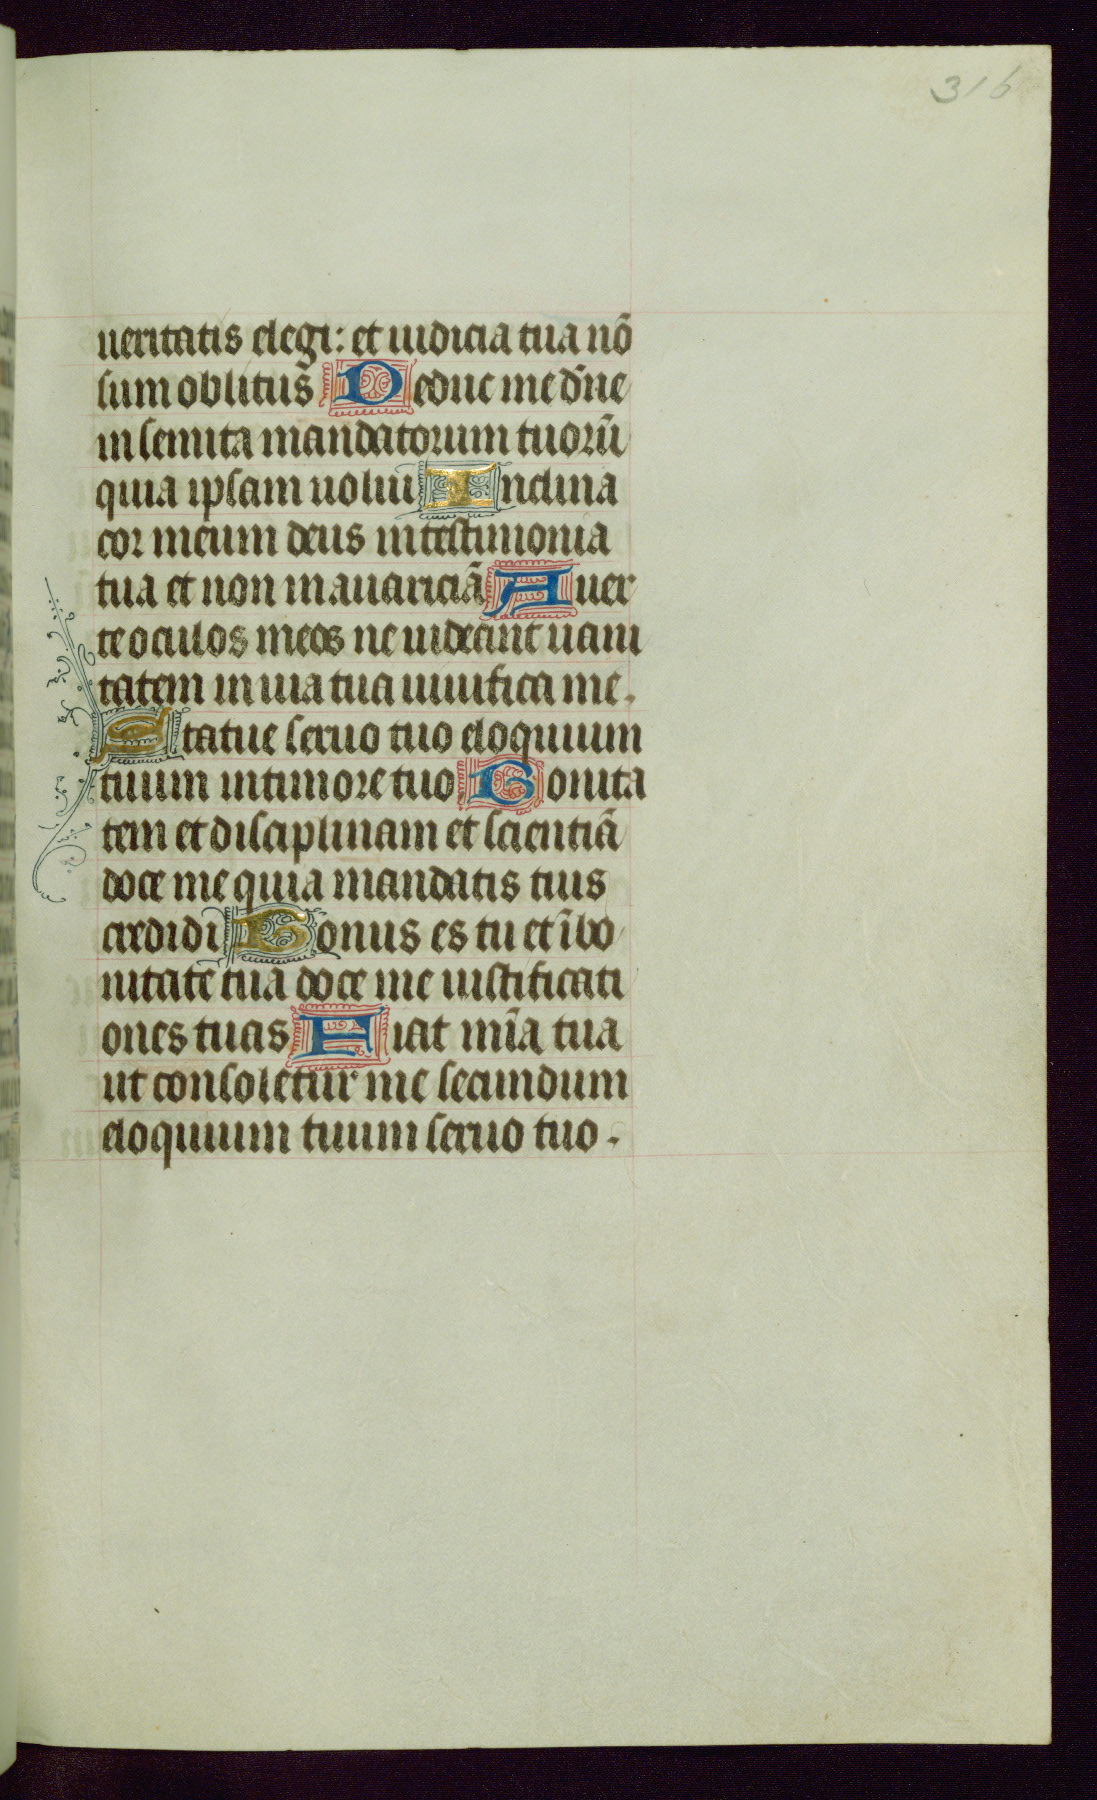 316
ueritatis elegi: et iudicia tua nō
sum oblitus Deduc me dn̄e
in semita mandatorum tuorū
quia ipsam uolui Inclina
cor meum deus in testimonia
tua et non in auariciā Auer
te oculos meos ne uideant uani
tatem in uia tua uiuifica me.
Statue seruo tuo eloquium
tuum in timore tuo Bonita
tem et disciplinam et scientiā
doce me quia mandatis tuis
credidi Bonus es tu et ī bo
nitate tua doce me iustificati
ones tuas Fiat mīa tua
ut consoletur me secundum
eloquium tuum seruo tuo.